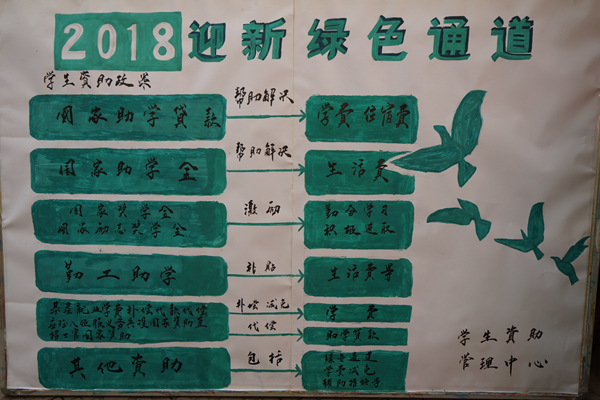 2018迎新绿色通道
学生资助政策
国家助学贷款
帮助解决
学费 住宿费
国家助学金
帮助解决
生活费
国家奖学金
国家励志奖学金
激励
勤奋学习
积极进取
勤工助学
补贴
生活费等
基层就业学费补偿代偿
应征入伍服义务兵役国家资助
士官国家资助
补偿 减免
学费
代偿
助学贷款
其他资助
包括
绿色通道
学费减免
辅助措施等
学生资助
管理中心